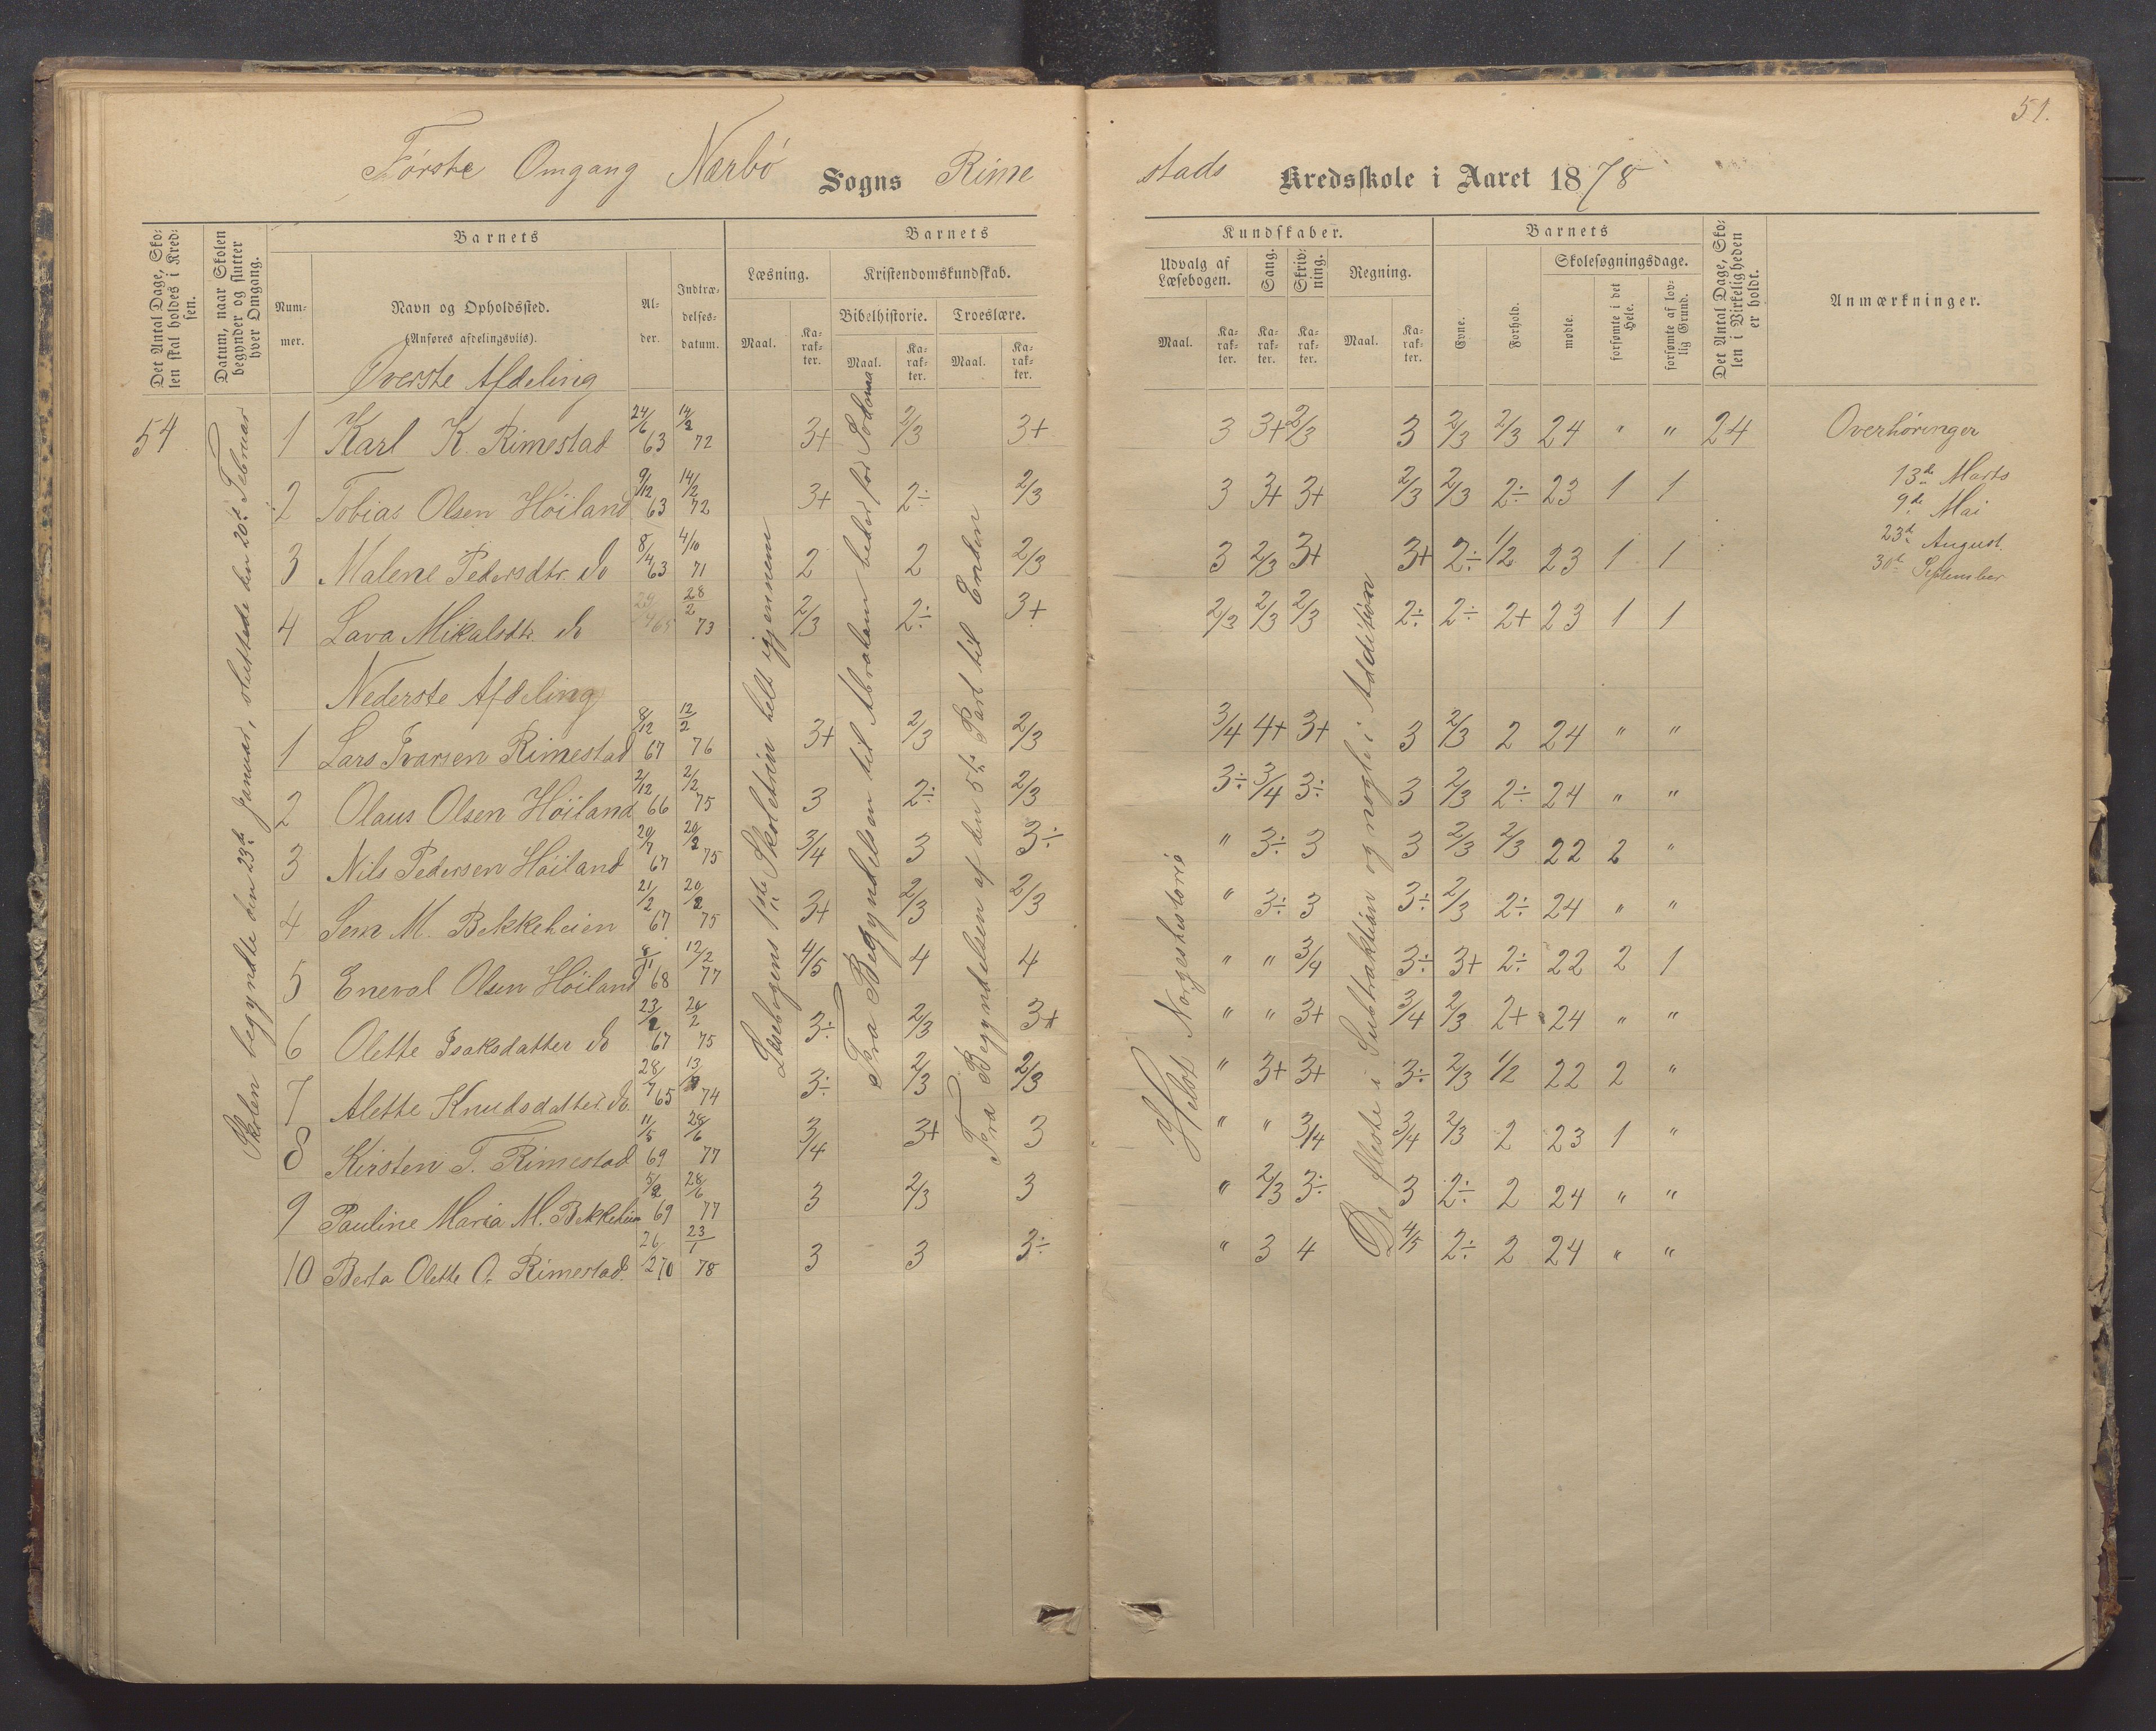 51.
Første Omgang Nærbø Sogns Rimestads Kredsskole i Aaret 1878
Det Antal Dage, Skolen skal holdes i Kredsen.
Datum, naar Skolen begynder og slutter hver Omgang.
Barnets
Nummer.
Navn og Opholdssted.
(Anføres afdelingsvis).
Alder.
Indtrædelsesdatum.
Barnets
Læsning.
Maal.
Karakter.
Kristendomskundskab.
Bibelhistorie.
Maal.
Karakter.
Troeslære.
Maal.
Karakter.
Kundskaber.
Udvalg af Læsebogen.
Maal.
Karakter.
Sang.
Karakter.
Skrivning.
Karakter.
Regning.
Maal.
Karakter.
Barnets
Evne.
Forhold.
Skolesøgningsdage.
mødte.
forsømte i det Hele.
forsømte af lovlig Grund.
Det Antal Dage, Skolen i Virkeligheden er holdt.
Anmærkninger.
54
Skolen begyndte den 23de Januar, sluttede den 20de Februar
Læsebogens 1ste Skoletrin helt igjennem
Fra Begyndelsen til Abraham beder for Sodoma
Fra Begyndelsen af den 5te Part til Enden
Helot Norgeshistorie
De fleste i Subtraktion og nogle i Addition
Øverste Afdeling
1 Karl K. Rimestad 24/6 63 14/2 72 3+ 2/3 3+ 3 3+ 2/3 3 2/3 2/3 24 " " 24 Overhøringer
2 Tobias Olsen Høiland 9/12 63 14/2 72 3+ 2÷ 2/3 3 3+ 3+ 2/3 2/3 2÷ 23 1 1 13de Marts
9de Mai
3 Malene Pedersdtr. do 8/4 63 4/10 71 2 2 2/3 3 2/3 3+ 3+ 2÷ 1/2 23 1 1 23de August
30te September
4 Lava Mikalsdtr. do 65 28/2 73 2/3 2÷ 3+ 2/3 2/3 2/3 2÷ 2÷ 2+ 23 1 1
Nederste Afdeling
1 Lars Ivarsen Rimestad 8/12 67 12/2 76 3+ 2/3 2/3 3/4 4+ 3+ 3 2/3 2 24 " "
2 Olaus Olsen Høiland 2/12 66 2/2 75 3 2÷ 2/3 3÷ 3/4 3÷ 3 2/3 2÷ 24 " "
3 Nils Pedersen Høiland 20/7 67 20/2 75 3/4 3 3÷ " 3÷ 3 3 2/3 2/3 22 2 "
4 Sem M. Bekkeheien 21/2 67 20/2 75 3+ 2/3 2/3 " 3÷ 3 3÷ 2/3 2÷ 24 " "
5 Eneval Olsen Høiland 8/11 68 12/2 77 4/5 4 4 " " 3/4 3÷ 3+ 2÷ 22 2 1
6 Olette Isaksdatter do 23/2 67 20/2 75 3÷ 2/3 3+ " " 3+ 3/4 2/3 2+ 24 " "
7 Alette Knudsdatter do. 28/7 65 13/2 74 3÷ 2/3 2/3 " 3+ 3+ 3÷ 2/3 1/2 22 2 "
8 Kirsten T. Rimestad 11/5 69 28/6 77 3/4 3+ 3 " " 3/4 3/4 2/3 2 23 1 "
9 Pauline Maria M. Bekkeheien 5/2 69 28/6 77 3 2/3 3 " 2/3 3÷ 3 2÷ 2 24 " "
10 Berta Olette O. Rimestad. 26/2 70 23/1 78 3 3 3÷ " 3 4 4/5 2÷ 2 24 " "